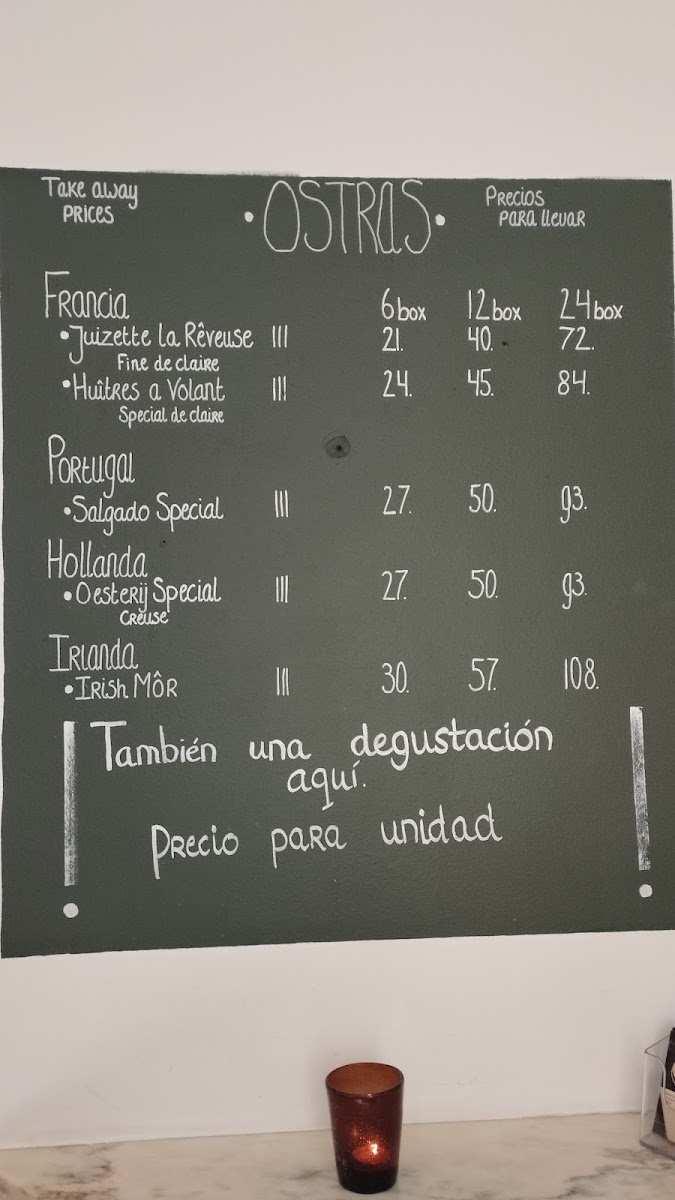 Take away
PRICES
• OSTRAS •
Precios
PARA llevar
Francia 6 box 12 box 24 box
• Juizette la Rêveuse III 21. 40. 72.
Fine de claire
• Huîtres a Volant III 24. 45. 84.
Special de claire
Portugal
• Salgado Special III 27. 50. 93.
Hollanda
• Oesterij Special III 27. 50. 93.
Creuse
Irlanda
• Irish Môr III 30. 57. 108.
! También una degustación !
aquí.
Precio para unidad